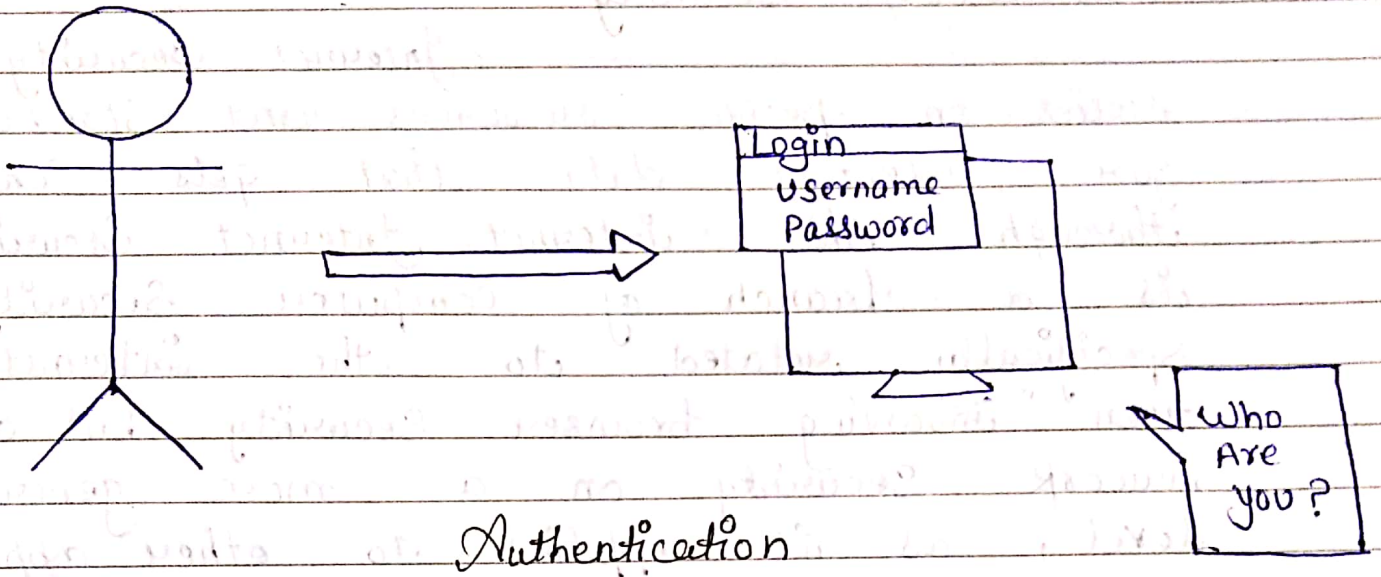 Login
Username
Password
Who
Are
you?
Authentication